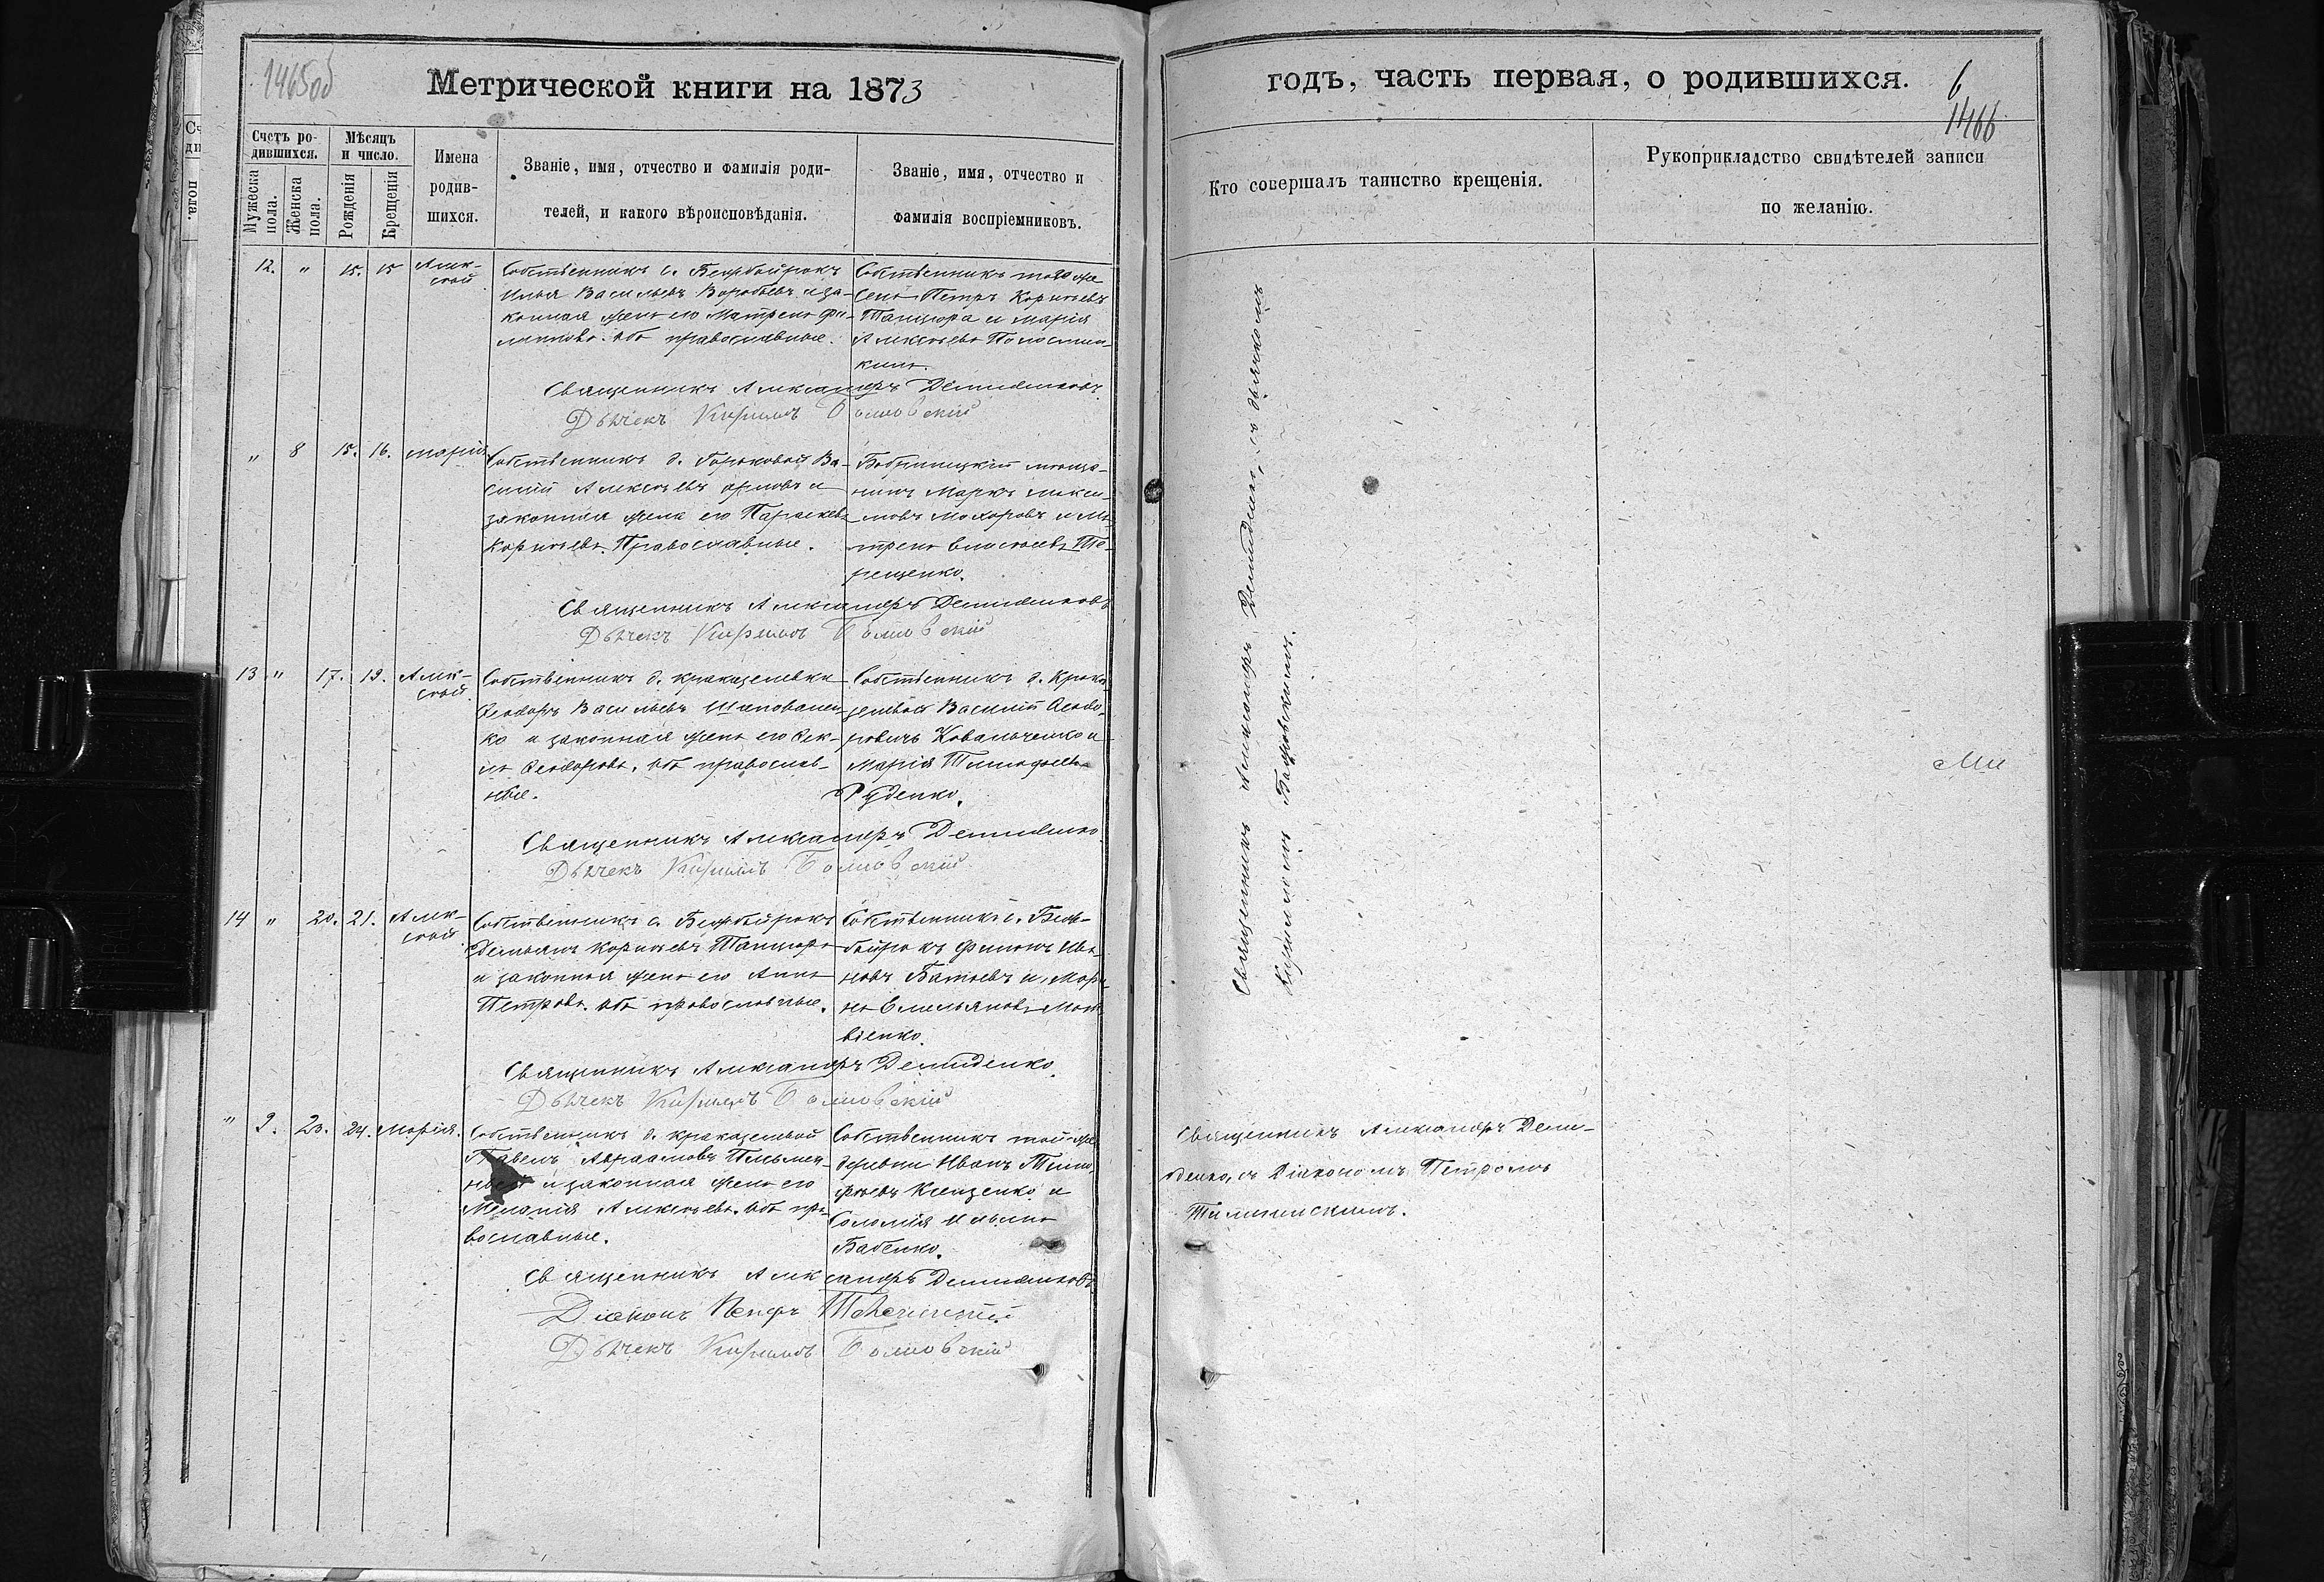 1465об
Метрической книги на 1873
Счетъ ро-
дившихся.
Мѣсяцъ
и число.
Мужеска
пола.
Женска
пола.
Рожденія
Крещенія
Имена
родив-
шихся.
Званіе, имя, отчество и фамилія роди-
телей, и какого вѣроисповѣданія.
Званіе, имя, отчество и
фамилія воспріемниковъ.
12. " 15. 15 Алек-
сѣй
Собственникъ с. Бешбайракъ
Илья Васильевъ Воробьевъ и за-
конная жена его Матрена Фи-
липова. Оба православные.
Собственникъ того же
села Петръ Корнѣевъ
Танцюра и Марія
Алексѣева
Священникъ Александръ Демиденковъ
Дьячекъ Кирилъ
" 8 15. 16. Марія
Собственникъ д. Ва-
силій Алексѣевъ Орловъ и
законная жена его Параскева
Корнѣева Православные.
Бобринецкій мѣща-
нинъ Марко Макси-
мовъ Мохоровъ и Ма-
трена Елисѣева Те-
рещенко.
Священникъ Александръ Демиденковъ
Дьячекъ Кирилъ
13 " 17. 19. Алек-
сѣй
Собственникъ д. Краказелевки
Феодоръ Васильевъ Шаповален-
ко и законная жена его Фек-
ла Феодорова. Оба православ-
ные.
Собственникъ д. Крака-
зелевой Василій Феодо-
ровичъ Ковальченко и
Марія Тимофеева
Руденко.
Священникъ Александръ Демиденко
Дьячекъ Кирилъ
14 " 20. 21. Алек-
сѣй
Собственникъ с. Бешбайракъ
Демьянъ Корнѣевъ Танцюра
и законная жена его Анна
Петрова. Оба православные.
Собственникъ с. Беш-
байракъ Филипъ Ива-
новъ Батыевъ и Мари-
на Емельянова Мат-
віенко.
Священникъ Александръ Демиденко
Дьячекъ Кирилъ
" 9. 23. 24. Марія.
Собственникъ д. Краказелевой
Павелъ Авраамовъ
и законная жена его
Меланія Алексѣева. Оба пра-
вославные.
Собственникъ той-же
деревни Иванъ Тимо-
фѣевъ Клещенко и
Соломія Ильина
Бабенко.
Священникъ Александръ Демиденковъ
Діаконъ Петръ
Дьячекъ Кирилъ
годъ, часть первая, о родившихся.
6
1466
Кто совершалъ таинство крещенія.
Рукоприкладство свидѣтелей записи
по желанію.
Священникъ Александръ Демиденко, съ дьячкомъ
Кириломъ
Священникъ Александръ Деми-
денко, съ Діакономъ Петромъ